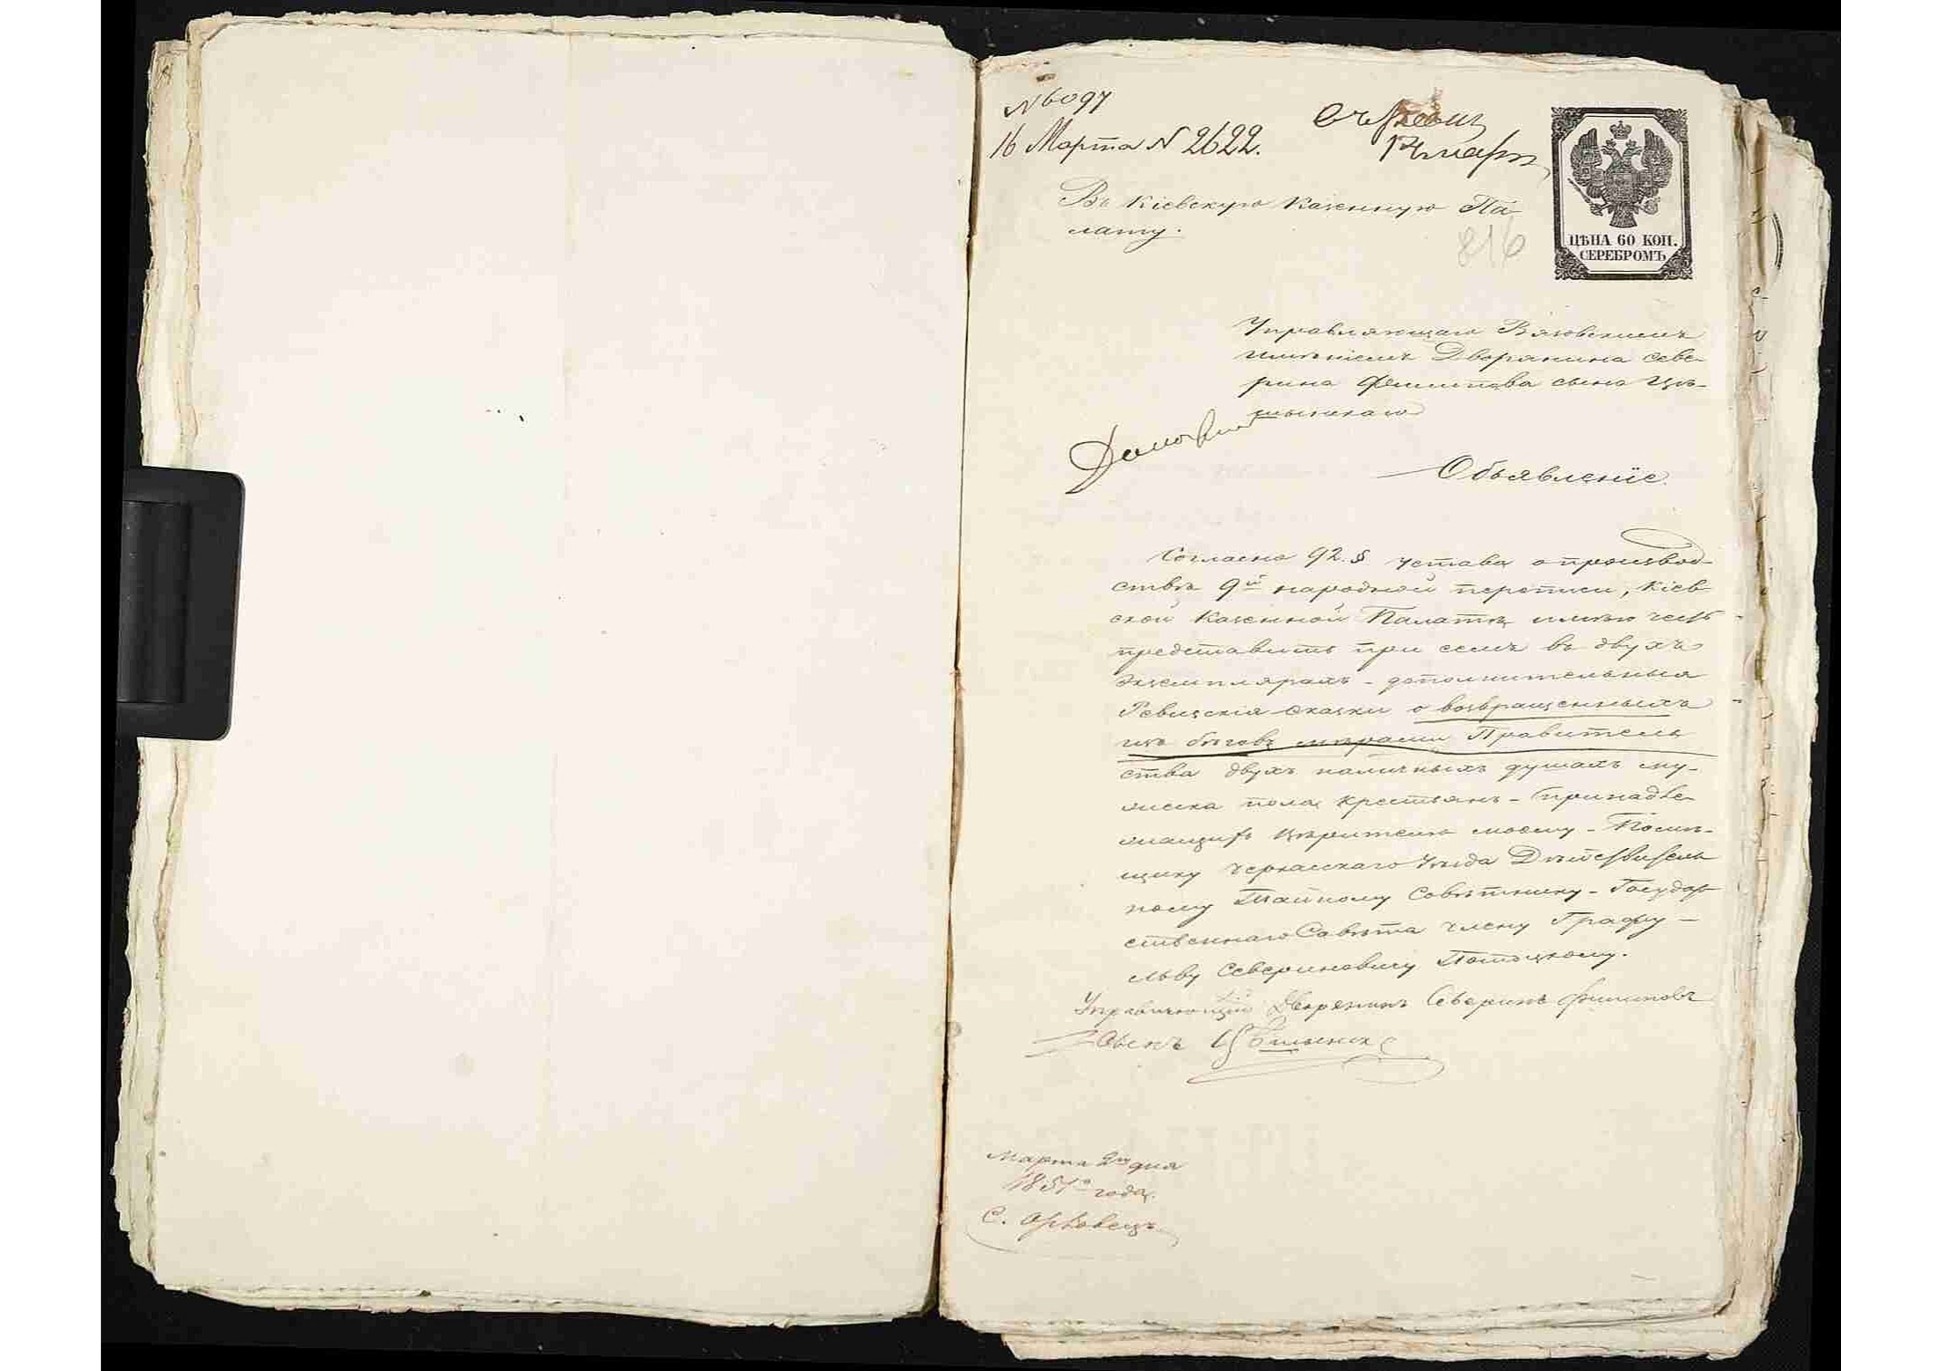 № 6097
16 Марта № 2622.
ЦѢНА 60 КОП.
СЕРЕБРОМЪ
Въ Кіевскую Казенную Па-
лату.
816
Управляющаго Вязовскимъ
имѣніемъ Дворянина Севе-
рина Филипова сына
Объявленіе.
Согласно 92. § устава о производ-
ствѣ 9й народной переписи, Кіев-
ской Казенной Палатѣ имѣю честь
представить при семъ въ двухъ
экземплярахъ - дополнительныя
Ревизскія сказки о возвращенныхъ
изъ бѣговъ мѣрами Правитель
ства двухъ наличныхъ душахъ му-
жеска пола крестьянъ - принадле-
жащихъ вѣрителю моему - Помѣ-
щику Черкасскаго Уѣзда Дѣйствитель
ному Тайному Совѣтнику - Государ
ственнаго Совѣта члену Графу -
Льву Севериновичу Потоцкому.
Управляющій Дворянинъ Северинъ Филиповъ
Сынъ
Марта 2го дня
1851го года.
С.